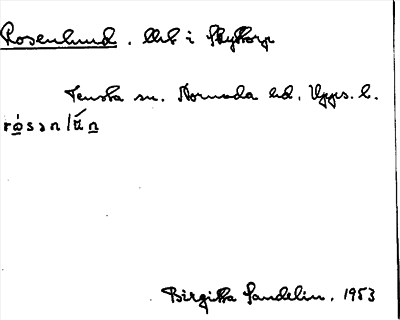 Rosenlund. Ubt i Skyttorp
Tensta sn. Norunda hd. Upps. l.
rósənlŭn
Birgitta Sandelin. 1953